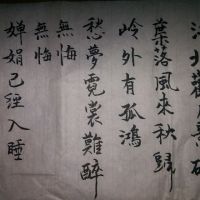 北觀
葉落風來秋歸
岭外有孤鴻
愁夢霓裳難醉
無悔
無悔
嬋娟已經入睡